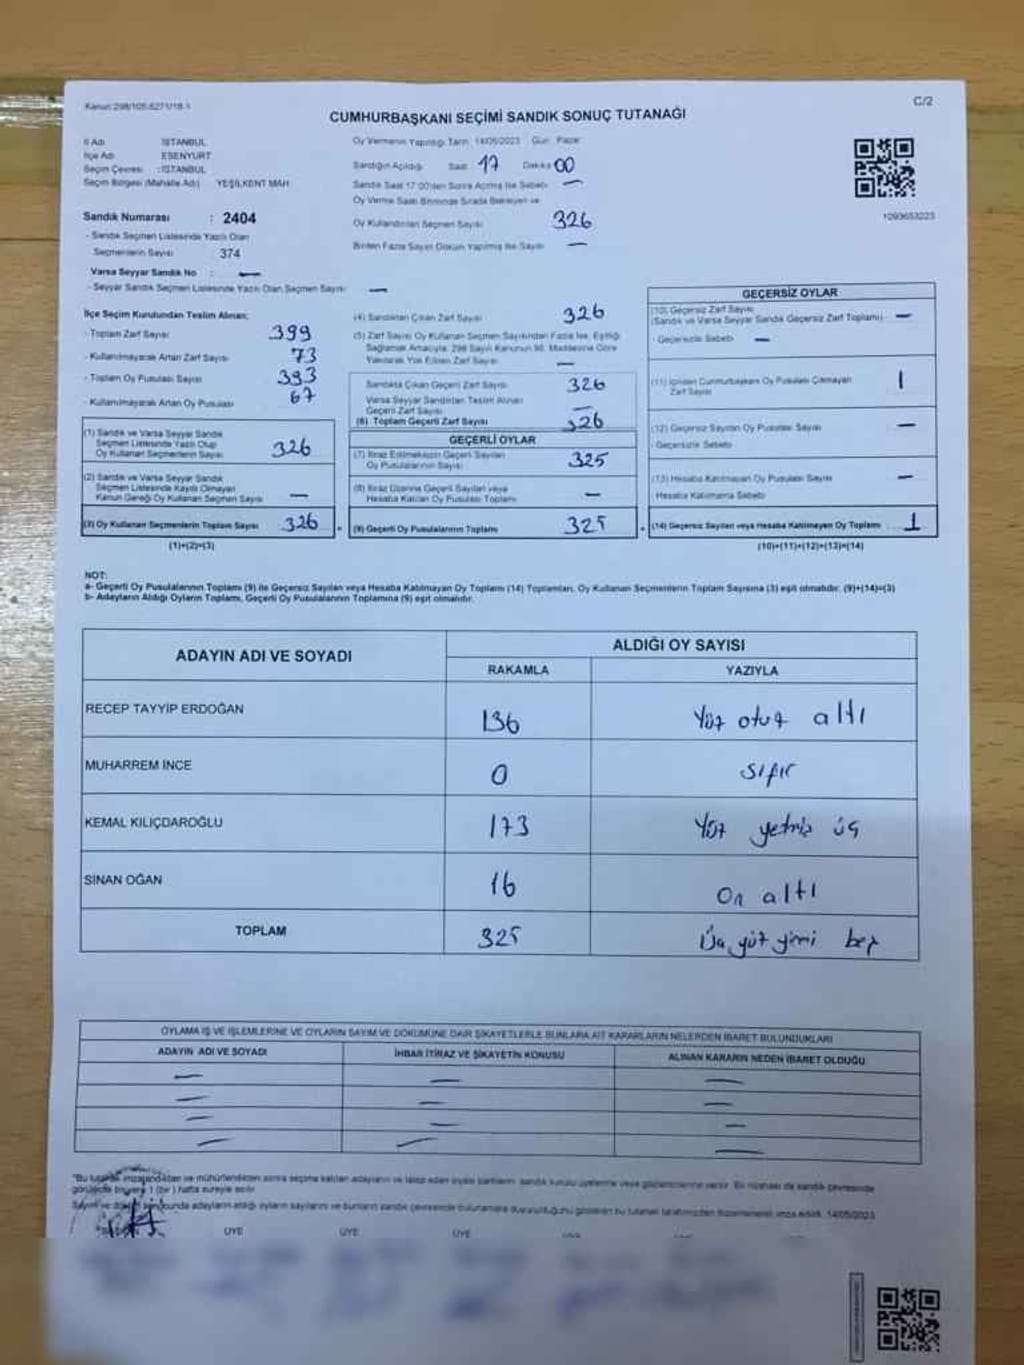 Kanun:298/105,6271/18-1
C/2
CUMHURBAŞKANI SEÇİMİ SANDIK SONUÇ TUTANAĞI
İl Adı : İSTANBUL
İlçe Adı : ESENYURT
Seçim Çevresi : İSTANBUL
Seçim Bölgesi (Mahalle Adı) YEŞİLKENT MAH.
Sandık Numarası : 2404
- Sandık Seçmen Listesinde Yazılı Olan
Seçmenlerin Sayısı 374
Varsa Seyyar Sandık No : —
- Seyyar Sandık Seçmen Listesinde Yazılı Olan Seçmen Sayısı —
Oy Vermenin Yapıldığı Tarih 14/05/2023 Gün Pazar
Sandığın Açıldığı Saat 17 Dakika 00
Sandık Saat 17:00'den Sonra Açılmış İse Sebebi —
Oy Verme Saati Bitiminde Sırada Bekleyen ve
Oy Kullandırılan Seçmen Sayısı 326
Birden Fazla Sayım Döküm Yapılmış İse Sayısı —
1093653223
İlçe Seçim Kurulundan Teslim Alınan;
- Toplam Zarf Sayısı 399
- Kullanılmayarak Artan Zarf Sayısı 73
- Toplam Oy Pusulası Sayısı 393
- Kullanılmayarak Artan Oy Pusulası 67
(1) Sandık ve Varsa Seyyar Sandık
Seçmen Listesinde Yazılı Olup
Oy Kullanan Seçmenlerin Sayısı 326
(2) Sandık ve Varsa Seyyar Sandık
Seçmen Listesinde Kayıtlı Olmayan
Kanun Gereği Oy Kullanan Seçmen Sayısı —
(3) Oy Kullanan Seçmenlerin Toplam Sayısı 326
(1)+(2)=(3)
(4) Sandıktan Çıkan Zarf Sayısı 326
(5) Zarf Sayısı Oy Kullanan Seçmen Sayısından Fazla İse, Eşitliği
Sağlamak Amacıyla; 298 Sayılı Kanunun 98. Maddesine Göre
Yakılarak Yok Edilen Zarf Sayısı —
Sandıkta Çıkan Geçerli Zarf Sayısı 326
Varsa Seyyar Sandıktan Teslim Alınan
Geçerli Zarf Sayısı —
(6) Toplam Geçerli Zarf Sayısı 326
GEÇERLİ OYLAR
(7) İtiraz Edilmeksizin Geçerli Sayılan
Oy Pusulalarının Sayısı 325
(8) İtiraz Üzerine Geçerli Sayılan veya
Hesaba Katılan Oy Pusulası Toplamı —
(9) Geçerli Oy Pusulalarının Toplamı 325
GEÇERSİZ OYLAR
(10) Geçersiz Zarf Sayısı
(Sandık ve Varsa Seyyar Sandık Geçersiz Zarf Toplamı) —
- Geçersizlik Sebebi —
(11) İçinden Cumhurbaşkanı Oy Pusulası Çıkmayan
Zarf Sayısı 1
(12) Geçersiz Sayılan Oy Pusulası Sayısı —
- Geçersizlik Sebebi
(13) Hesaba Katılmayan Oy Pusulası Sayısı —
- Hesaba Katılmama Sebebi
(14) Geçersiz Sayılan veya Hesaba Katılmayan Oy Toplamı 1
(10)+(11)+(12)+(13)=(14)
NOT:
a- Geçerli Oy Pusulalarının Toplamı (9) ile Geçersiz Sayılan veya Hesaba Katılmayan Oy Toplamı (14) Toplamları, Oy Kullanan Seçmenlerin Toplam Sayısına (3) eşit olmalıdır. (9)+(14)=(3)
b- Adayların Aldığı Oyların Toplamı, Geçerli Oy Pusulalarının Toplamına (9) eşit olmalıdır.
ADAYIN ADI VE SOYADI
ALDIĞI OY SAYISI
RAKAMLA YAZIYLA
RECEP TAYYİP ERDOĞAN 136 Yüz otuz altı
MUHARREM İNCE 0 sıfır
KEMAL KILIÇDAROĞLU 173 Yüz yetmiş üç
SİNAN OĞAN 16 On altı
TOPLAM 325 Üç yüz yirmi beş
OYLAMA İŞ VE İŞLEMLERİNE VE OYLARIN SAYIM VE DÖKÜMÜNE DAİR ŞİKAYETLERLE BUNLARA AİT KARARLARIN NELERDEN İBARET BULUNDUKLARI
ADAYIN ADI VE SOYADI İHBAR İTİRAZ VE ŞİKAYETİN KONUSU ALINAN KARARIN NEDEN İBARET OLDUĞU
— — —
— — —
— — —
— — —
*Bu tutanak imzalandıktan ve mühürlendikten sonra seçime katılan adayların ve talep eden siyasi partilerin sandık kurulu üyelerine veya gözlemcilerine verilir. Bir nüshası da sandık çevresinde
görülecek bir yere 1 (bir) hafta süreyle asılır.
Sayım ve döküm sonucunda adayların aldığı oyların sayılarını ve bunların sandık çevresinde bulunanlara duyurulduğunu gösteren bu tutanak tarafımızdan düzenlenerek imza edildi. 14/05/2023
ÜYE ÜYE ÜYE